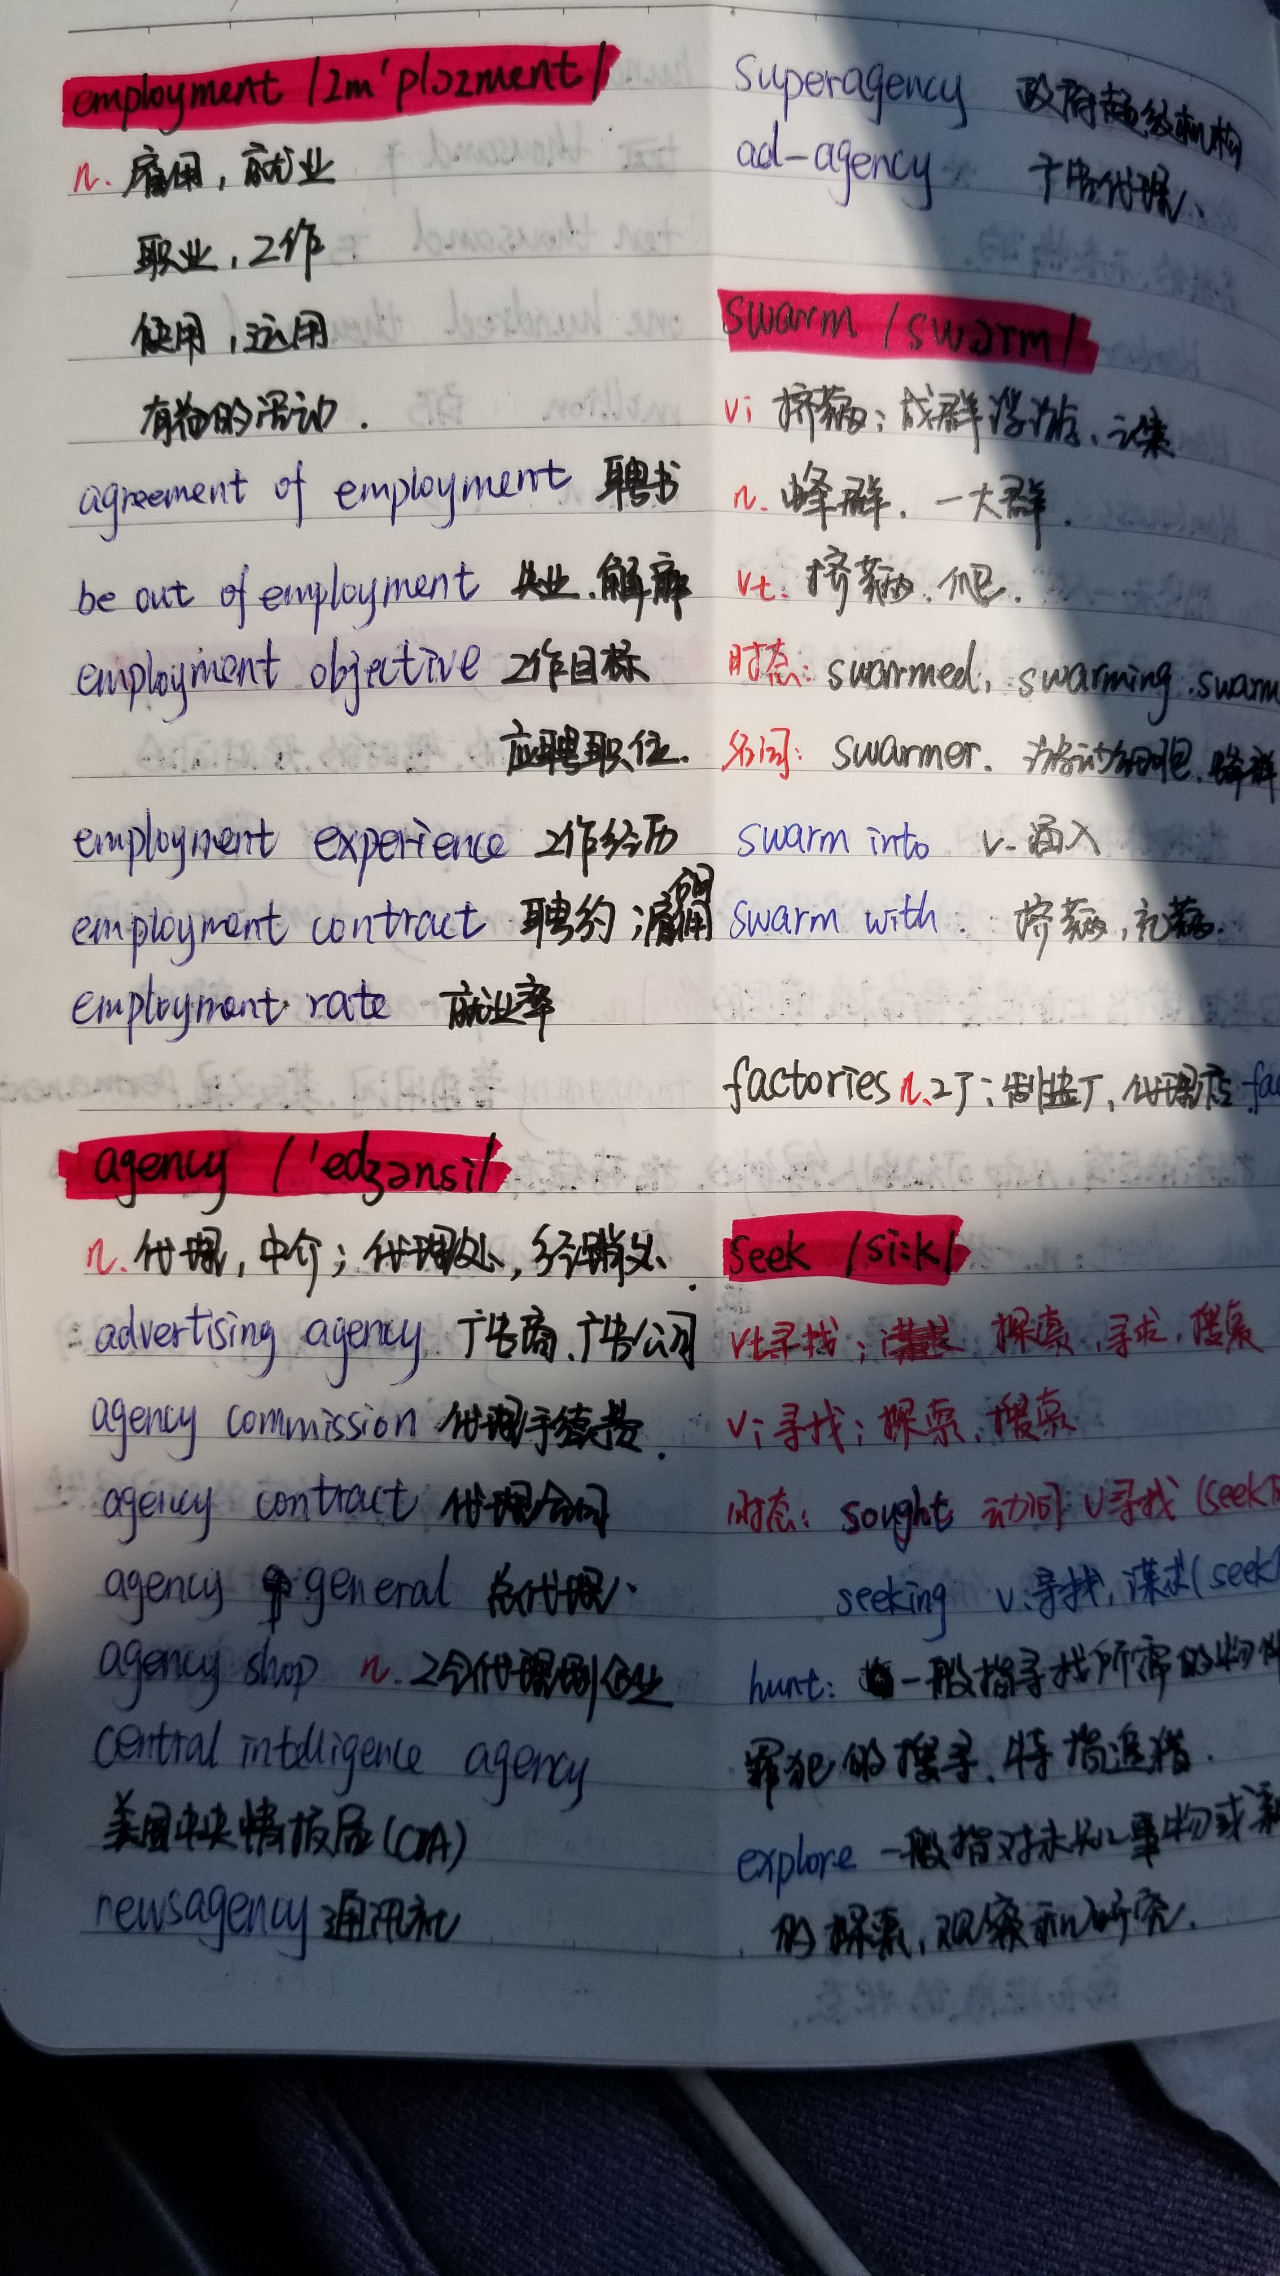 employment /ɪm'plɔɪment/
n. 雇用，就业
职业，工作
使用，运用
有益的活动.
agreement of employment 聘书
be out of employment 失业.解雇
employment objective 工作目标
应聘职位.
employment experience 工作经历
employment contract 聘约；雇佣合同
employment rate 就业率
agency /'edʒənsi/
n. 代理，中介；代理处、经销处.
advertising agency 广告商、广告公司
agency commission 代理手续费.
agency contract 代理合同
agency general 总代理.
agency shop n. 工会代理制企业
central intelligence agency
美国中央情报局(CIA)
newsagency 通讯社
superagency 政府超级机构
ad-agency 广告代理、
swarm /swɔrm/
vi 挤满；成群浮游、云集
n. 蜂群. 一大群.
vt. 挤满、爬.
时态: swarmed, swarming.swarm
名词: swarmer. 游动细胞、蜂群
swarm into v. 涌入
swarm with. 挤满，充满.
factories n.工厂；制造厂，代理店 fac
seek /si:k/
vt寻找； 探索，寻求，搜索
vi寻找；探索，搜索
时态: sought 动词 v寻找 (seek
seeking v.寻找，谋求(seek
hunt: 一般指寻找所需的物件
罪犯的搜寻.特指追猎.
explore 一般指对未知事物或
的探索，观察和研究.